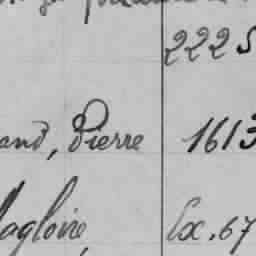 2225
and, Pierre 1613
Magloire, Ex. 67